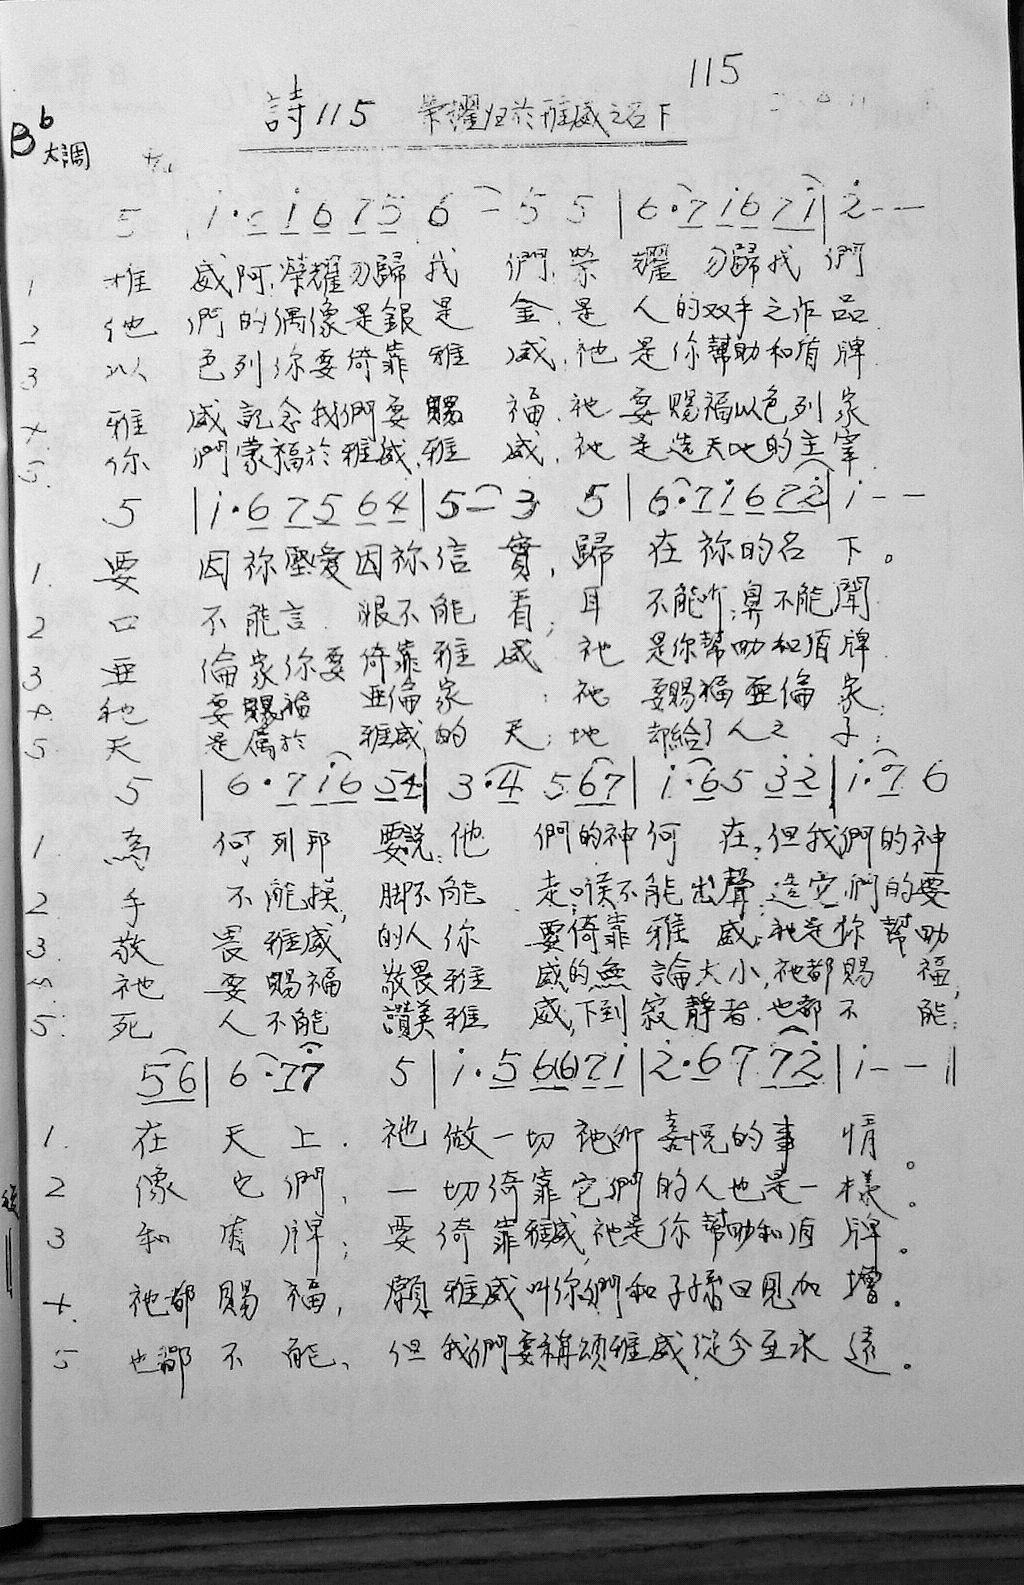 115
詩115 榮耀歸於雅威之名下
B♭大調
5 i·5 i 6 7 5 6 - 5 5 | 6·7 i 6 7 i | 2̇ - -
1 雅威阿,榮耀勿歸我們,榮耀勿歸我們
2 他們的偶像是銀是金,是人的双手之作品
3 以色列你要倚靠雅威,祂是你幫助和盾牌
4 雅威記念我們要賜福,祂要賜福以色列家
5. 你們蒙福於雅威,雅威,祂是造天地的主宰
5 | i·6 7 5 6 4 | 5 - 3 5 | 6·7 i 6 7 2̇ | i - -
1. 要因祢慈愛因祢信實,歸在祢的名下。
2 口不能言 眼不能看;耳不能听;鼻不能聞
3 亜倫家你要倚靠雅威 祂是你幫助和盾牌
4. 祂要賜福亜倫家;祂要賜福亜倫家;
5 天是属於雅威的天;地却給了人之子;
5 | 6·7 i 6 5 4 | 3·4 5 6 7 | i·6 5 3̇ 2̇ | i·7 6
1. 為何列邦要說:他們的神何在,但我們的神
2. 手不能摸,脚不能走,喉不能出聲;造它們的要
3. 敬畏雅威的人你要倚靠雅威;祂是你幫助
祂要賜福敬畏雅威的無論大小,祂都賜福,
5. 死人不能讚美雅威,下到寂靜者.也都不能;
5 6 | 6·7 7 5 | i·5 6(6) 7 i | 2̇·6 7 7 2̇ | i - - ||
1. 在天上.祂做一切祂所喜悅的事情。
2 像他們,一切倚靠它們的人也是一樣。
3 和盾牌;要倚靠雅威,祂是你幫助和盾牌。
4. 祂都賜福,願雅威叫你們和子孫日見加增。
5 也都不能,但我們要稱頌雅威從今至永遠。